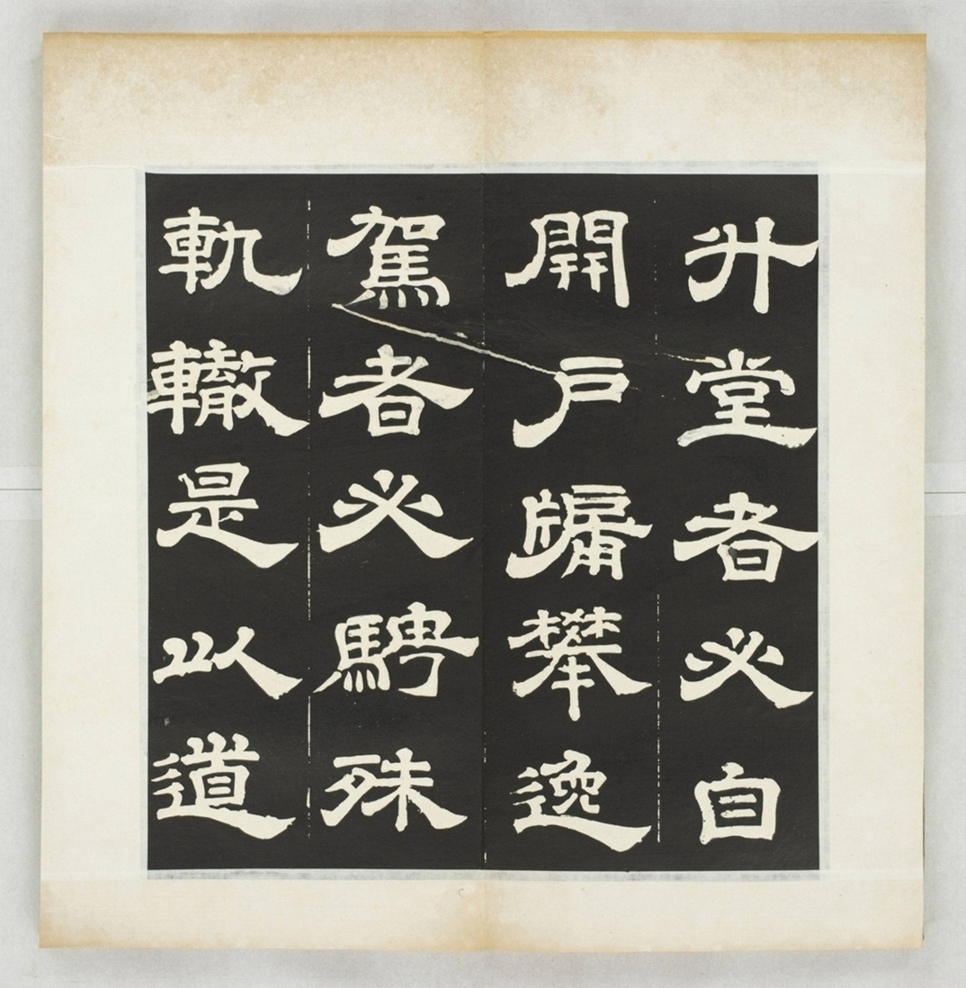 升堂者必自
開戶牖攀逸
駕者必騁殊
軌轍是以道